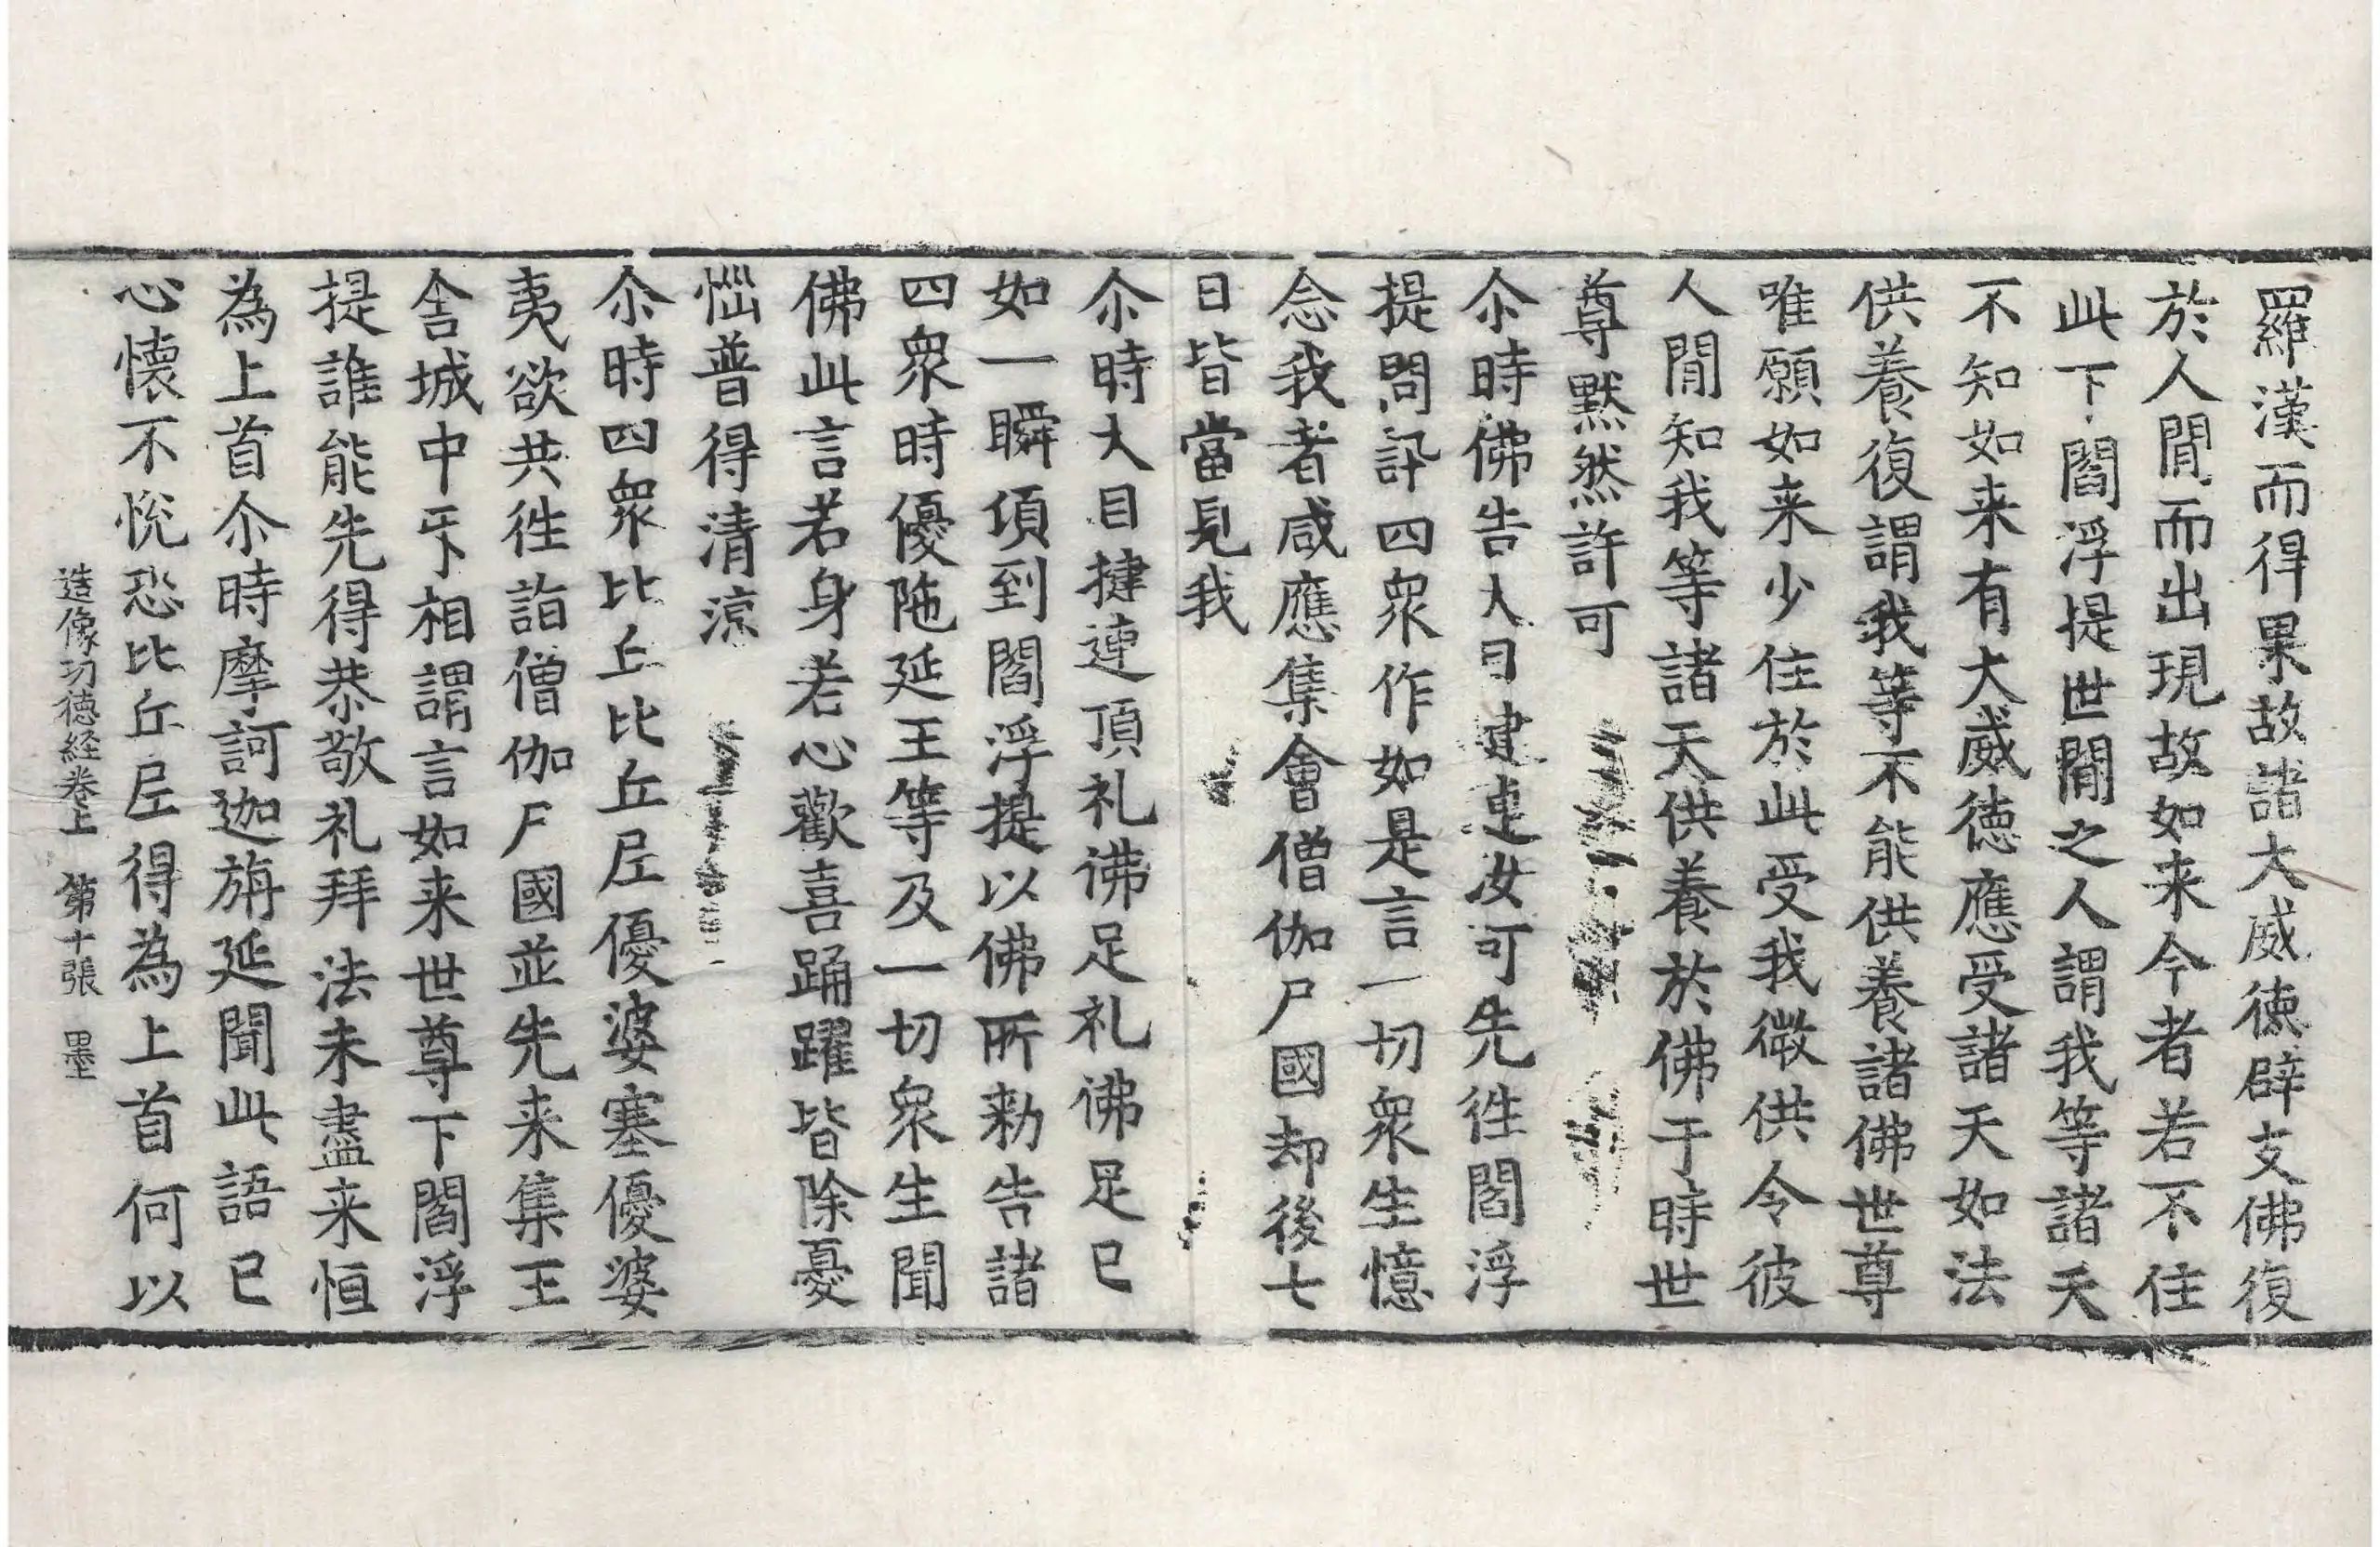 羅漢而得果故諸大威徳辟支佛復
於人閒而出現故如来今者若不住
此下閻浮提世閒之人謂我等諸天
不知如来有大威徳應受諸天如法
供養復謂我等不能供養諸佛世尊
唯願如来少住於此受我微供令彼
人閒知我等諸天供養於佛于時世
尊黙然許可
尒時佛告大目揵連汝可先徃閻浮
提問訊四衆作如是言一切衆生憶
念我者咸應集會僧伽尸國却後七
日皆當見我
尒時大目揵連頂礼佛足礼佛足已
如一瞬頃到閻浮提以佛所勑告諸
四衆時優陁延王等及一切衆生聞
佛此言若身若心歡喜踊躍皆除憂
惱普得清涼
尒時四衆比丘比丘尼優婆塞優婆
夷欲共徃詣僧伽尸國並先来集王
舍城中㸦相謂言如来世尊下閻浮
提誰能先得恭敬礼拜法未盡来恒
為上首尒時摩訶迦旃延聞此語已
心懐不恱恐比丘尼得為上首何以
造像功徳経卷上 第十張 墨